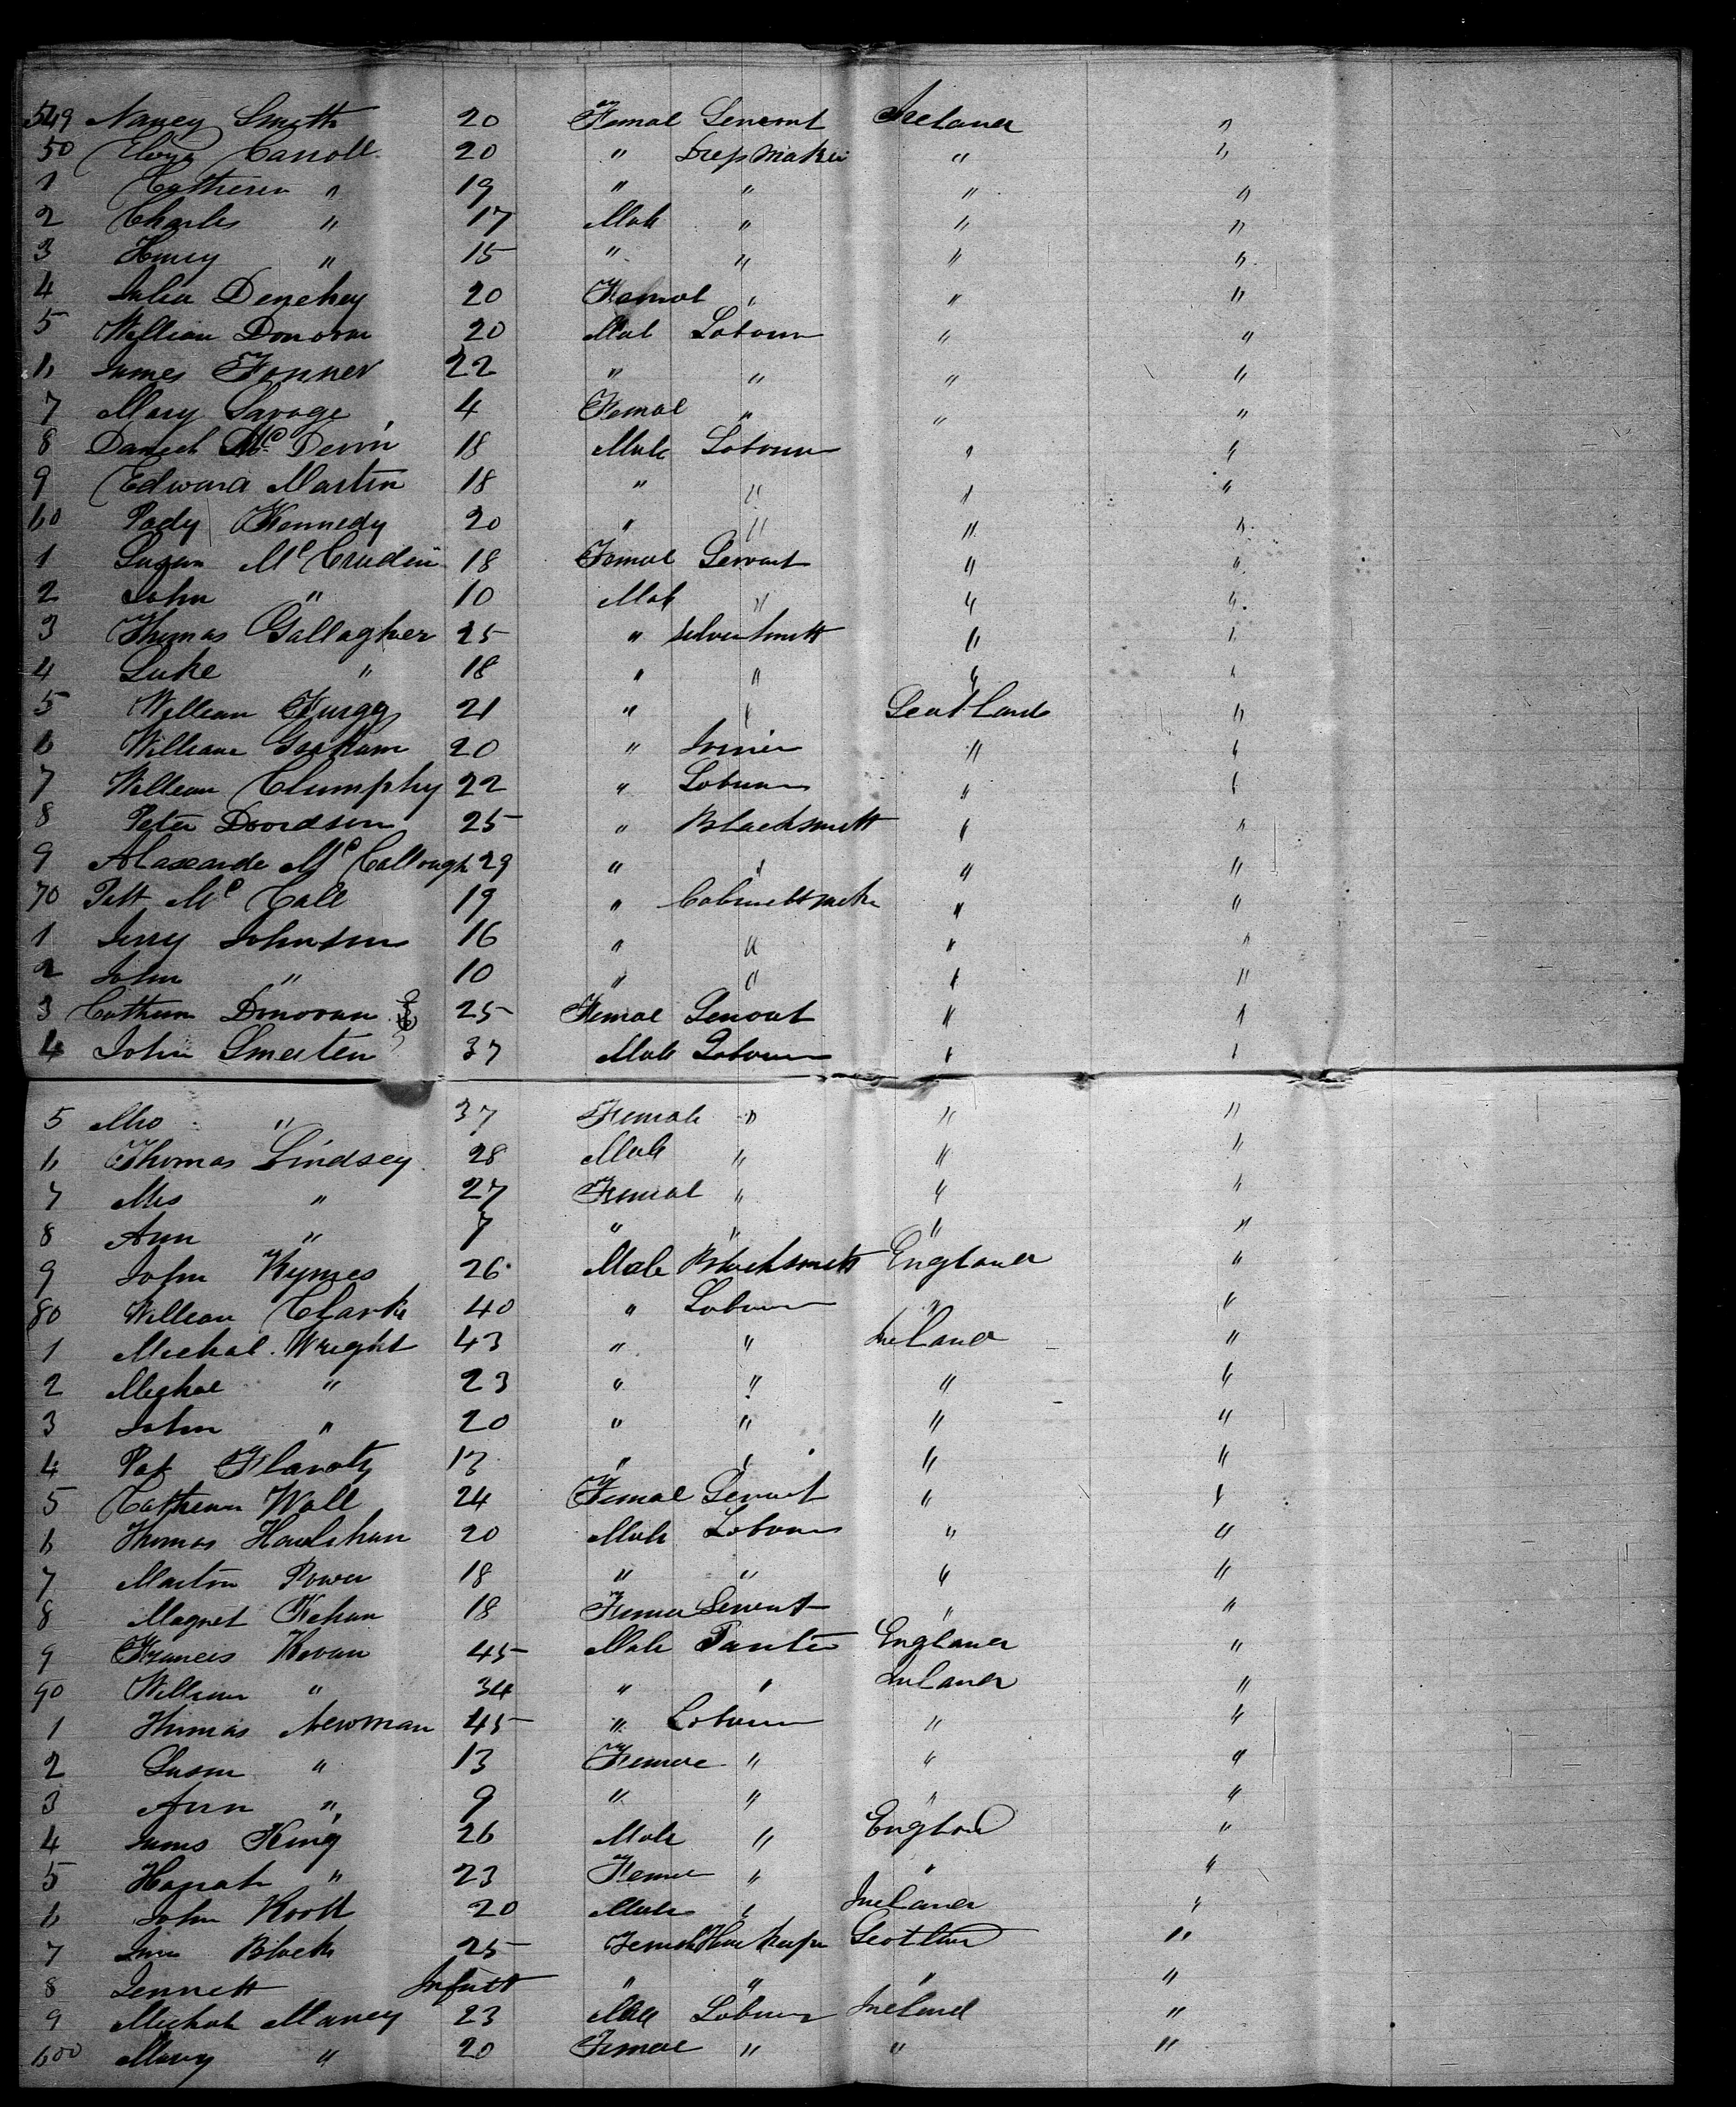 549 Nancy Smith 20 Femal Servant Ireland "
50 Eliza Carroll 20 " Dressmaker " "
1 Catherin " 19 " " " "
2 Charles " 17 Male " " "
3 Henry " 15 " " " "
4 Julia Denehey 20 Femal " " "
5 William Donovan 20 Male Labourer " "
6 James Fonner 22 " " " "
7 Mary Savage 4 Femal " " "
8 Daniel Mc Devin 18 Male Labourer " "
9 Edward Martin 18 " " " "
60 Pady Kennedy 20 " " " "
1 Susan Mc Crudin 18 Femal Servant " "
2 John " 10 Male " " "
3 Thomas Gallagher 25 " Silversmith " "
4 Luke " 18 " " " "
5 William 21 " " Scotland "
6 William Graham 20 " Joiner " "
7 William Clumphy 22 " Labourer " "
8 Peter Davidson 25 " Blacksmith " "
9 Alaxande Mc Callough 29 " " " "
70 Mc Call 19 " Cabinettmaker " "
1 Jerry Johnson 16 " " " "
2 John " 10 " " " "
3 Cathern Donovan 25 Femal Servant " "
4 John Smeiten 37 Male Labourer " "
5 Mrs " 37 Female " " "
6 Thomas Lindsey 28 Male " " "
7 Mrs " 27 Femal " " "
8 Ann " 7 " " " "
9 John Kymes 26 Male Blacksmith England "
80 William Clarke 40 " Labourer " "
1 Michal Wright 43 " " Ireland "
2 Michal " 23 " " " "
3 John " 20 " " " "
4 Pat 13 " " " "
5 Cathern Wall 24 Femal Servant " "
6 Thomas Houlahan 20 Male Labourer " "
7 Martin Power 18 " " " "
8 Magret Kehan 18 Femal Servant " "
9 Francis Kevan 45 Male Painter England "
90 William " 34 " " Ireland "
1 Thomas Newman 45 " Labourer " "
2 Susan " 13 Femal " " "
3 Ann " 9 " " " "
4 James King 26 Male " England "
5 Hanah " 23 Femal " " "
6 John 20 Male " Ireland "
7 Black 25 Female House Keeper Scotland "
8 Jennett Infant " " " "
9 Michal Maney 23 Male Labourer Ireland "
600 Mary " 20 Femal " " "